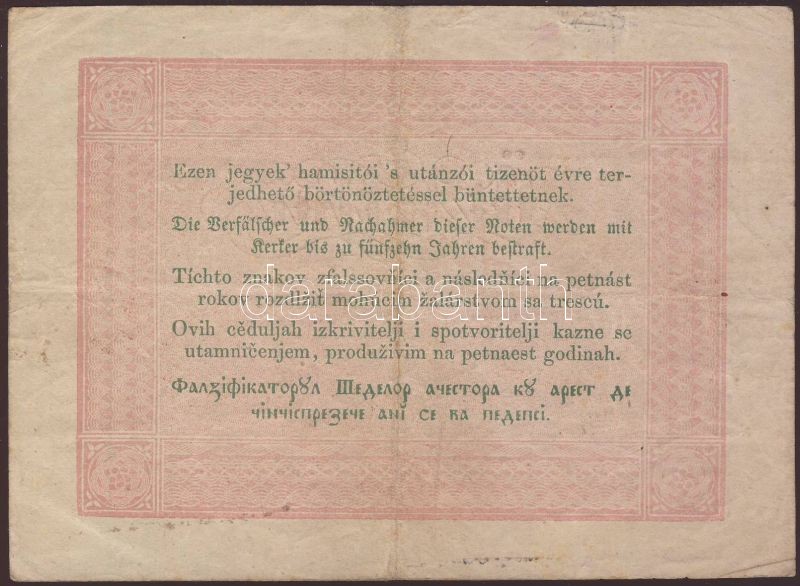 Ezen jegyek' hamisitói 's utánzói tizenöt évre ter-
jedhető börtönöztetéssel büntettetnek.
Die Verfälscher und Nachahmer dieser Noten werden mit
Kerker bis zu fünfzehn Jahren bestraft.
Tíchto znakov zfalssovňíci a násladňíci na petnást
rokov rozdlžiť mohúcím žalárstvom sa trescú.
Ovih cěduljah izkrivitelji i spotvoritelji kazne se
utamničenjem, produživim na petnaest godinah.
Фалзіфікаторꙋл Шеделор ачестора кꙋ арест де
чінчіспрезече ані се ва педепсі.
darabanth